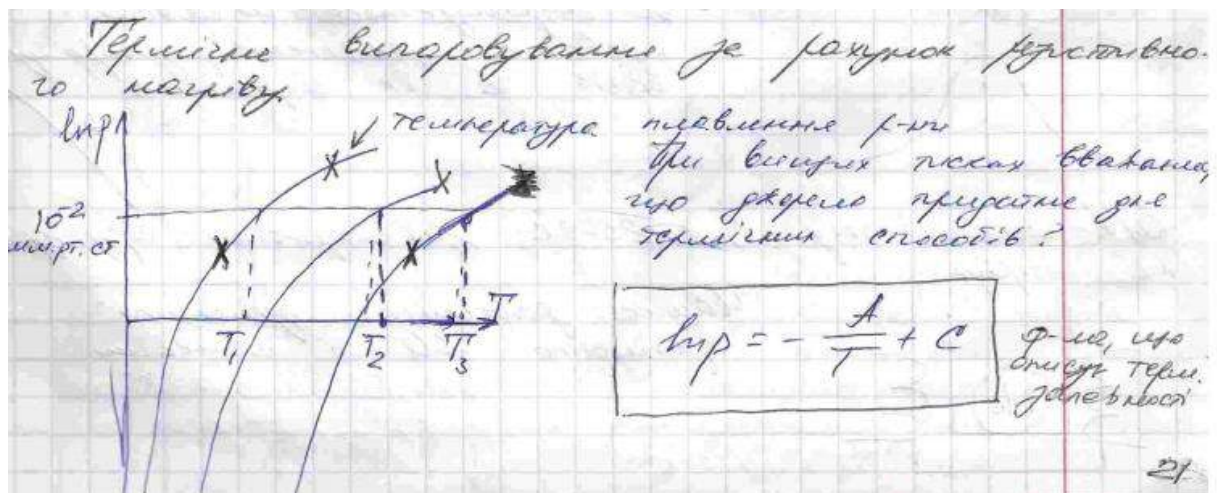 Термічне випаровування за рахунок резистивно-
го нагріву.
lnp
температура плавлення р-ни
При вищих тисках вважаємо,
що джерело придатне для
термічних способів?
10⁻²
мм.рт.ст
T
T₁ T₂ T₃
lnp = - A/T + C
ф-ла, що
описує терм.
залежності
21